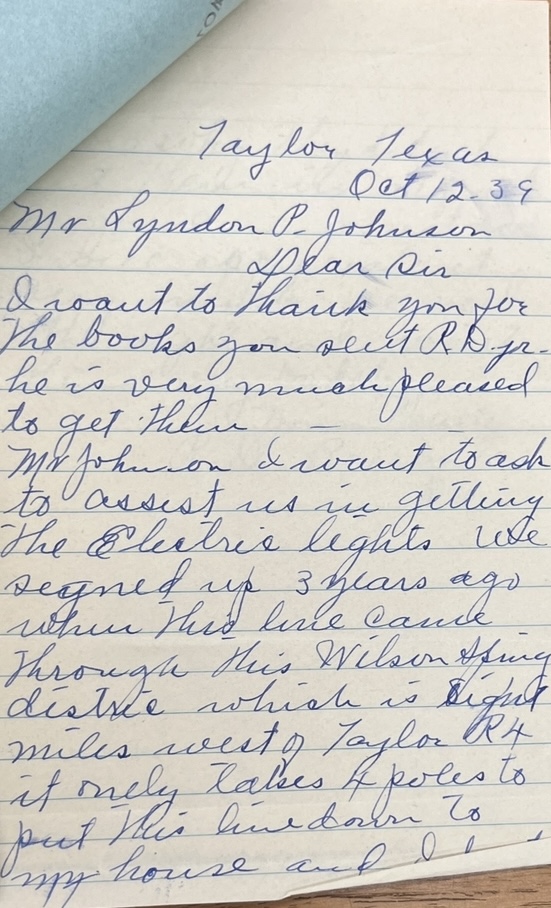 Taylor Texas
Oct 12-39
Mr Lyndon P. Johnson
Dear Sir
I want to thank you for
the books you sent R.D. jr.
he is very much pleased
to get them —
Mr Johnson I want to ask
to assist us in getting
the Electric lights We
segned up 3 years ago
when this line came
through this Wilson Spring
distric which is Eight
miles west of Taylor R4
it onely takes 4 poles to
put this line down to
my house and I